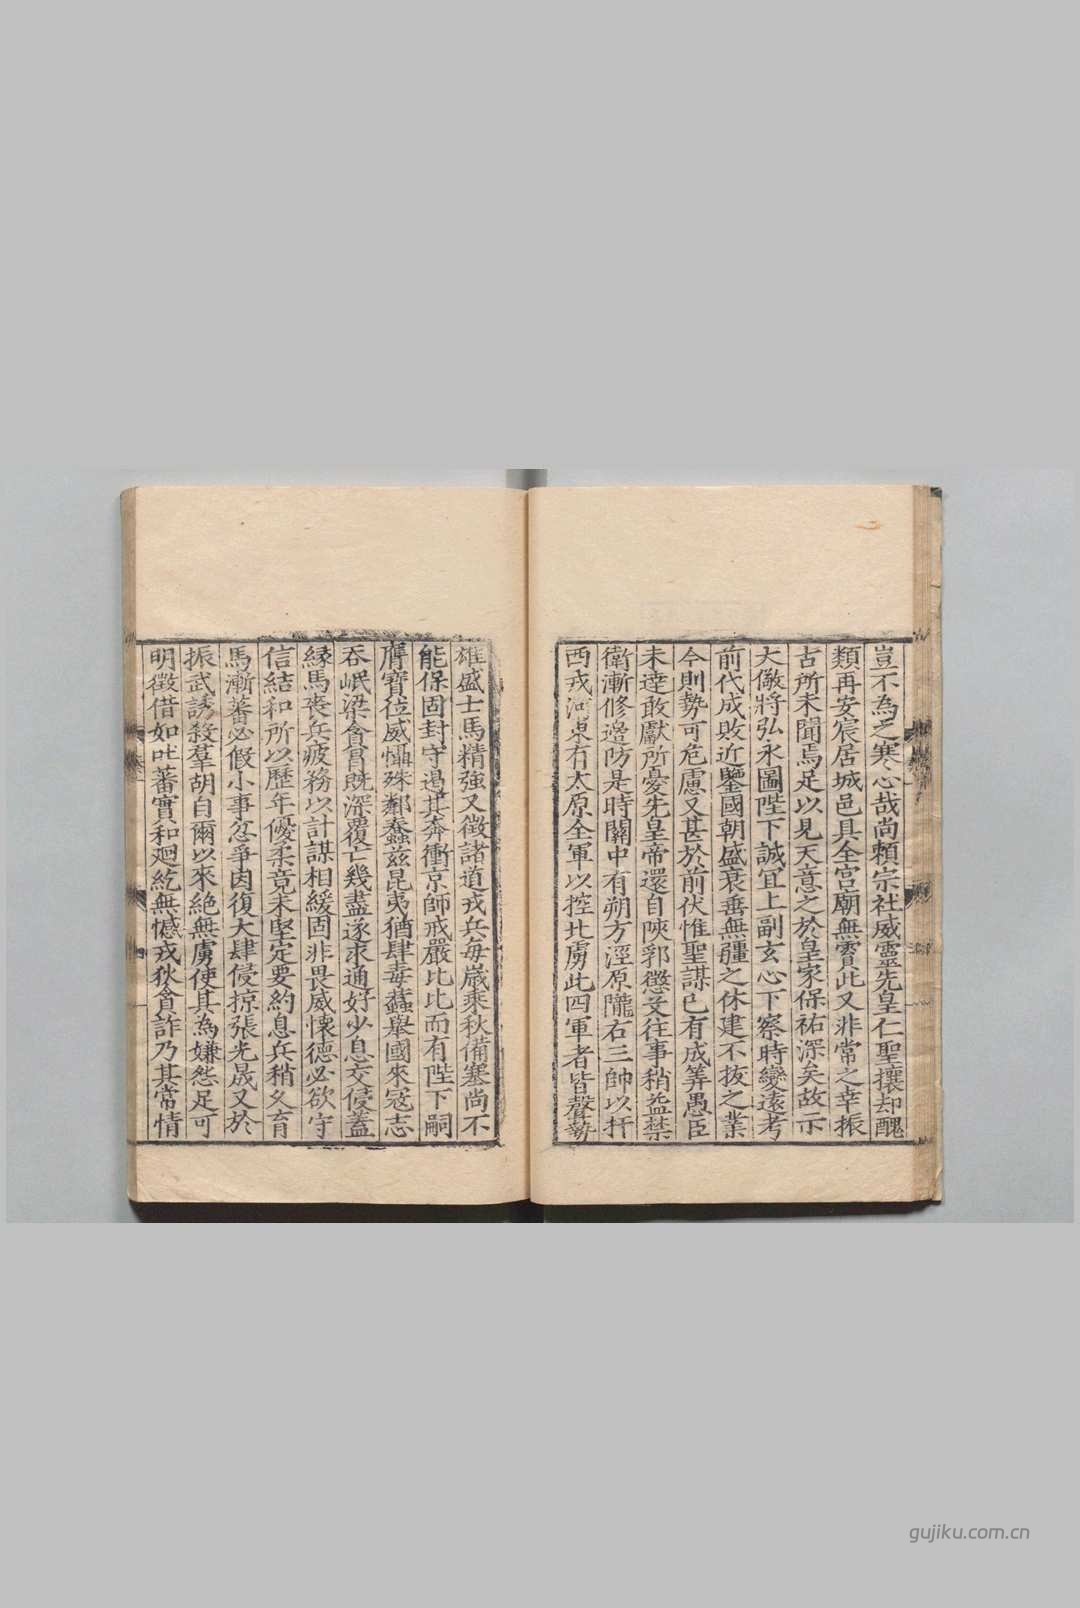 豈不為之寒心哉尚頼宗社威靈先皇仁聖攘却醜
類再安宸居城邑具全宮廟無霣此又非常之幸振
古所未聞焉足以見天意之於皇家保祐深矣故示
大儆將弘永圖陛下誠冝上副玄心下察時變遠考
前代成敗近鑒國朝盛衰垂無疆之休建不拔之業
今則勢可危慮又甚於前伏惟聖謀已有成筭愚臣
未達敢獻所憂先皇帝還自陝郛懲艾往事稍益禁
衛漸修邊防是時關中有朔方涇原隴右三帥以扞
西戎河東有太原全軍以控北虜此四軍者皆聲勢
雄盛士馬精強又徵諸道戎兵每嵗乘秋備塞尚不
能保固封守遏其奔衝京師戒嚴比比而有陛下嗣
膺寶位威懾殊鄰蠢茲昆夷猶肆毒蠚舉國來寇志
吞岷梁貪冒既深覆亡幾盡遂求通好少息交侵蓋
緣馬喪兵疲務以計謀相緩固非畏威懷德必欲守
信結和所以歷年優柔竟未堅定要約息兵稍久育
馬漸蕃必假小事忿爭因復大肆侵掠張光晟又於
振武誘殺羣胡自爾以來絶無虜使其為嫌怨足可
明徵借如吐蕃實和迴紇無憾戎狄貪詐乃其常情
gujiku.com.cn